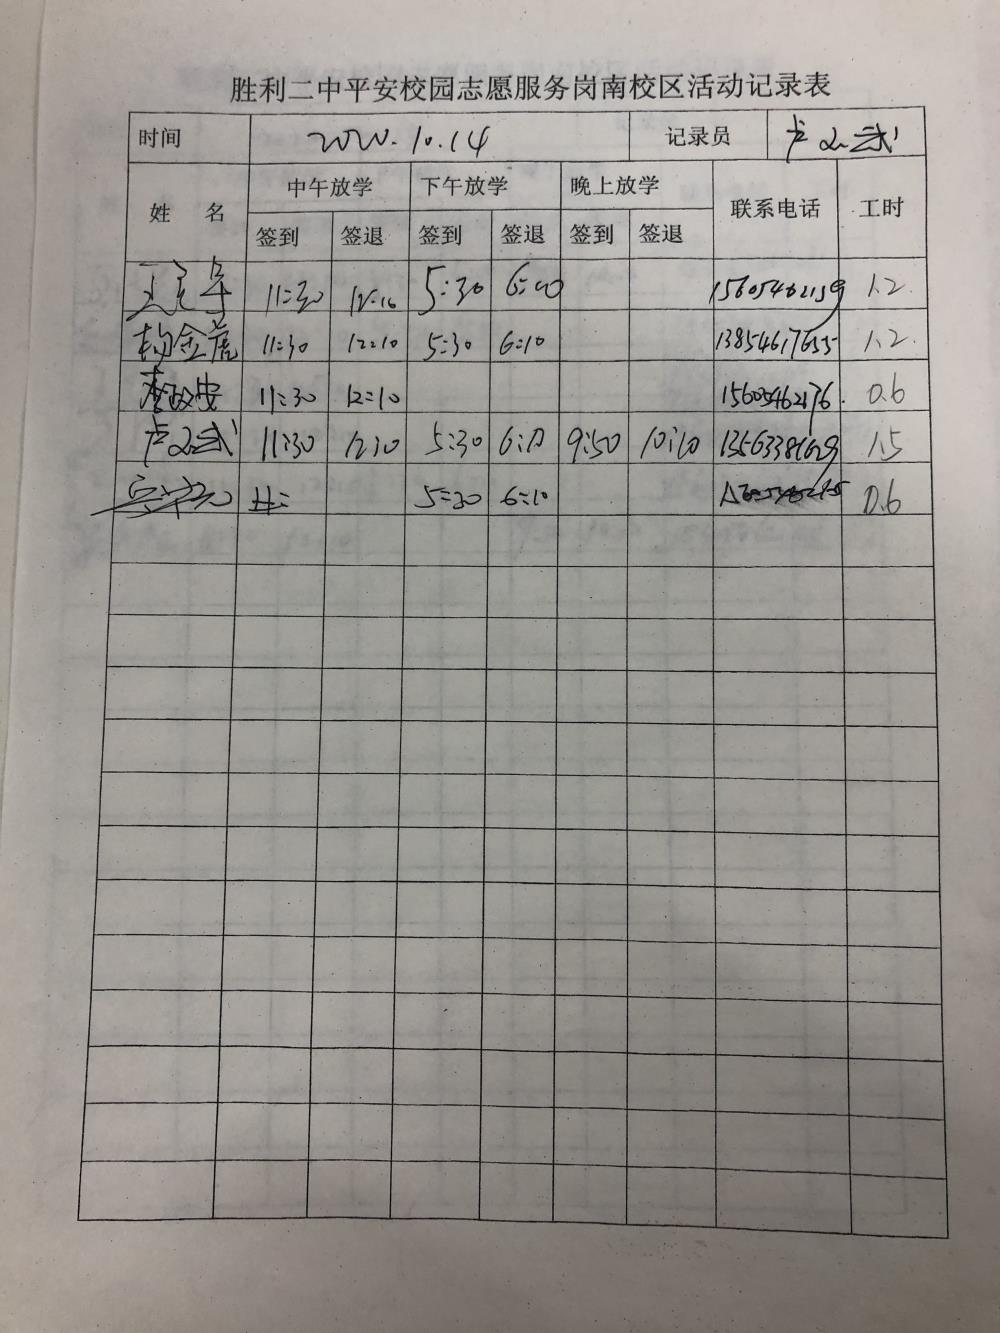 胜利二中平安校园志愿服务岗南校区活动记录表
时间 2020.10.14 记录员 卢文武
姓 名 中午放学 下午放学 晚上放学 联系电话 工时
签到 签退 签到 签退 签到 签退
11:30 12:10 5:30 6:10 15605462159 1.2
金虎 11:30 12:10 5:30 6:10 13854617655 1.2
李政安 11:30 12:10 15605462176 0.6
卢文武 11:30 12:10 5:30 6:10 9:50 10:10 13563381629 1.5
5:30 6:10 0.6